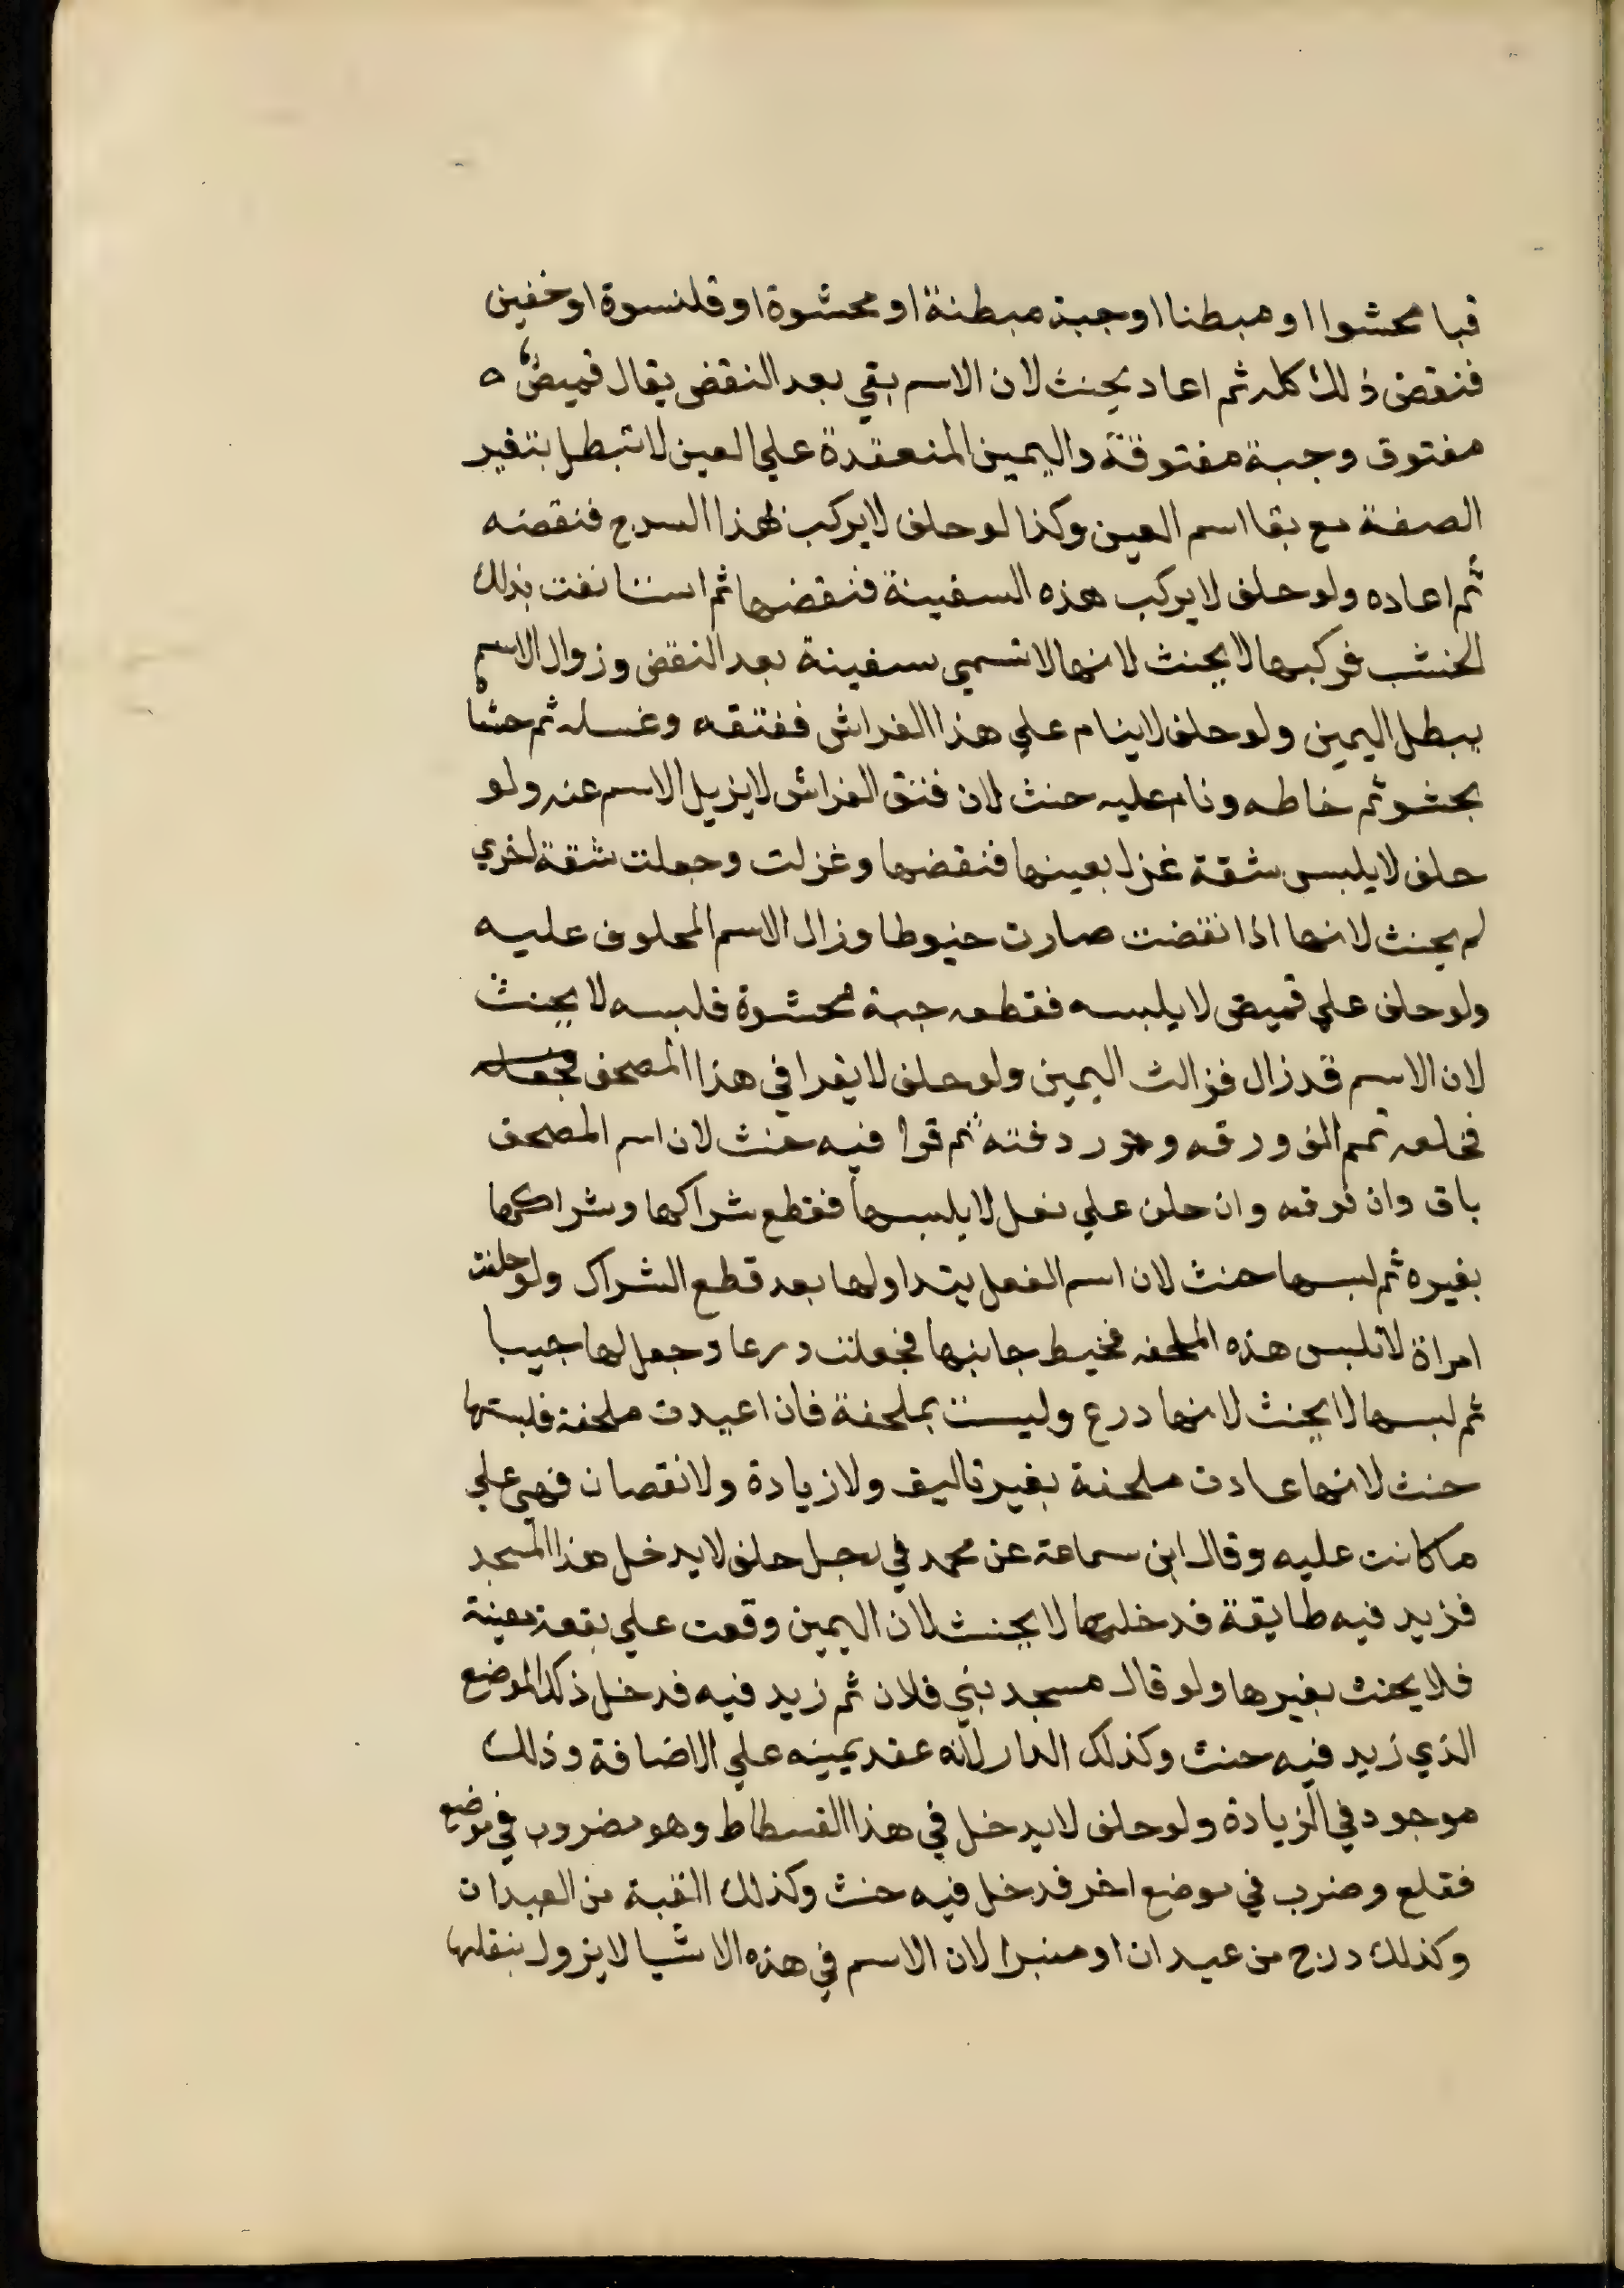 قبا محشوا او مبطنا او جبة مبطنة او محشوة او قلنسوة او خفين
فنقض ذلك كله ثم اعاد يحنث لان الاسم بقي بعد النقض يقال قميص ه
مفتوق وجبة مفتوقة واليمين المنعقدة علي العين لا تبطل بتغير
الصفة مع بقا اسم العين وكذا لو حلف لا يركب هذا السرج فنقضه
ثم اعاده ولو حلف لا يركب هذه السفينة فنقضها ثم استانفت بذلك
الخشب فركبها لا يحنث لانها لا تسمي سفينة بعد النقض وزوال الاسم
يبطل اليمين ولو حلف لا ينام علي هذا الفراش ففتقه وغسله ثم حشاه
بحشو ثم خاطه ونام عليه حنث لان فتق الفراش لا يزيل الاسم عنه ولو
حلف لا يلبس شقة غزل بعينها فنقضها وغزلت وجعلت شقة اخري
لم يحنث لانها اذا نقضت صارت خيوطا وزال الاسم المحلوف عليه
ولو حلف علي قميص لا يلبسه فقطعه جبة محشوة فلبسه لا يحنث
لان الاسم قد زال فزالت اليمين ولو حلف لا يقرا في هذا المصحف فجعله
فخلعه ثم الف ورقه و دفته ثم قرا فيه حنث لان اسم المصحف
باق وان فرقه وان حلف علي نعل لا يلبسها فقطع شراكها وشراكها
بغيره ثم لبسها حنث لان اسم الفعل يتداولها بعد قطع الشراك ولو حلفت
امراة لا تلبس هذه الملحفه فخيط جانبها فجعلت درعا وجعل لها جيبا
ثم لبسها لا يحنث لانها درع وليست بملحفة فان اعيدت ملحفة فلبستها
حنث لانها عادت ملحفة بغير تاليف ولا زيادة ولا نقصان فهي علي
ما كانت عليه وقال ابن سماعة عن محمد في رجل حلف لا يدخل هذا المسجد
فزيد فيه طايقة فدخلها لا يحنث لان اليمين وقعت علي بقعة معينة
فلا يحنث بغيرها ولو قال مسجد بني فلان ثم زيد فيه فدخل ذلك الموضع
الذي زيد فيه حنث وكذلك الدار لانه عقد يمينه علي الاضافة وذلك
موجود في الزيادة ولو حلف لا يدخل في هذا الفسطاط وهو مضروب في موضع
فقلع وضرب في موضع اخر فدخل فيه حنث وكذلك القبة من العيدان
وكذلك درج من عيدان او منبرا لان الاسم في هذه الاشيا لا يزول بنقلها